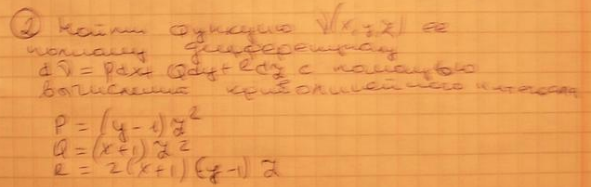 ② Найти функцию V(x,y,z) ее
полному дифференциалу
dV = Pdx + Qdy + Rdz с помощью
вычисления криволинейного интеграла
P = (y-1)z²
Q = (x+1)z²
R = 2(x+1)(y-1)z